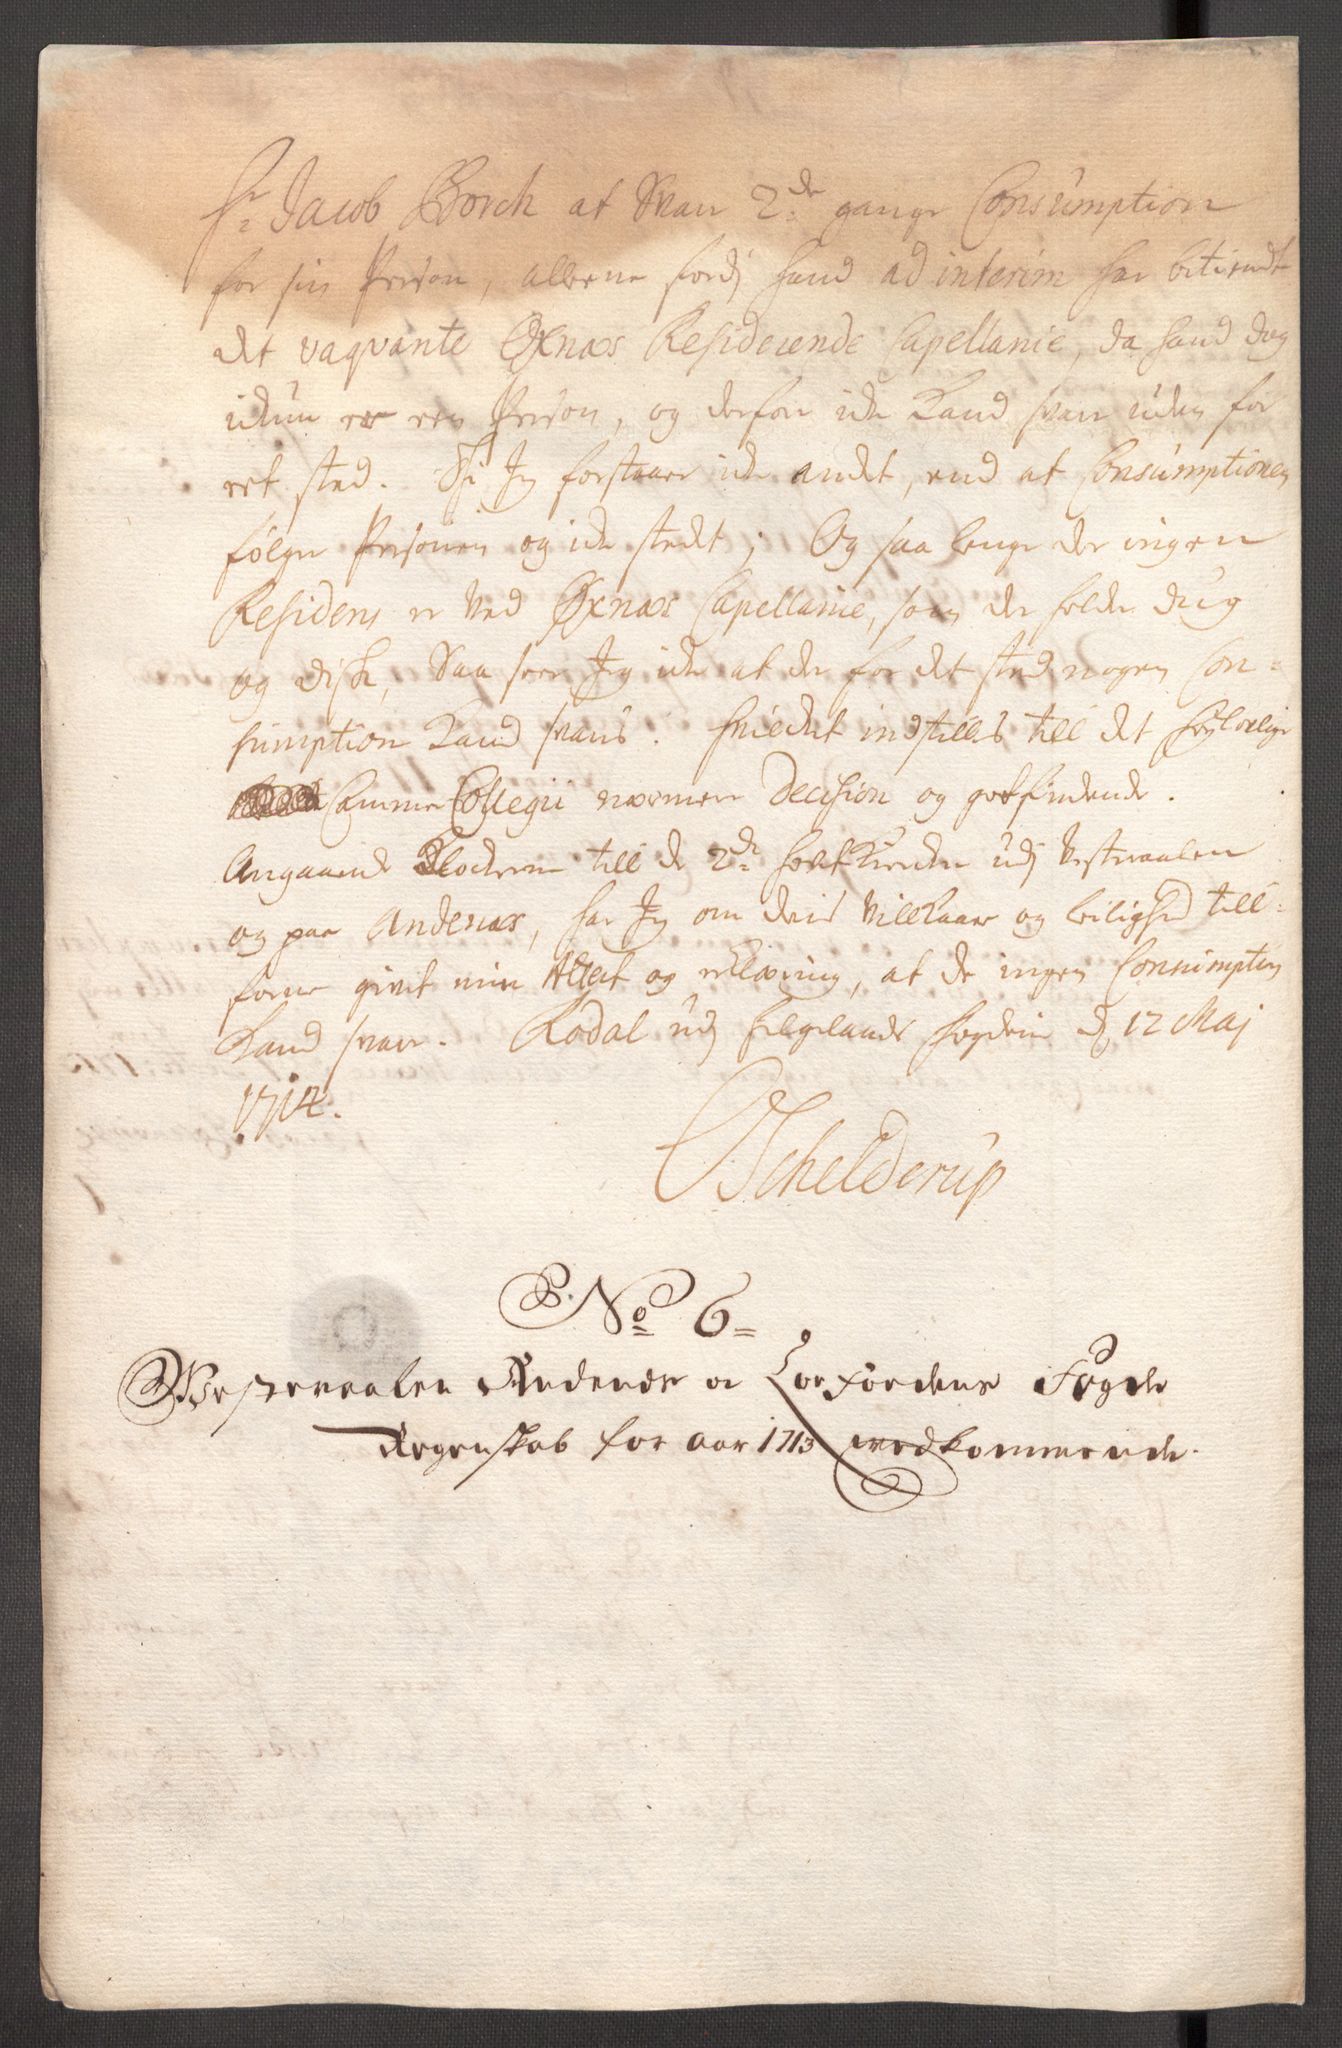 Hr Jacob Borch at svare 2de gange Consumption
for sin Person, alleene fordj hand ad interim har betiendt
det vaqvante Øxnæs Residerende Capellanie, da hand dog
ickun er een Person, og derfor icke kand svare uden for
eet sted. Thi Jeg forstaar icke andet, end at Consumptionen
følger Personen og icke stedet; Og saa lenge der ingen
Residens er ved Øxnæs Capellanie, som der holder dug
og disk, Saa seer Jeg icke at der for det sted nogen Con=
sumption kand svaris. Hvilcket indstilles till det Høylovlige
Cammer Collegii nærmere Decision og gotfindende.
Angaaende Klockerne till de 2de hovet Kircker udj Vesteraalen
og paa Andenæs, har Jeg om deris villkaar og leilighed till=
forne givet min Attest og erklæring, at de ingen Consumption
kand svare. Rødal udj Helgelands fogderie d 12 Maj
1714.
OSchelderup
No 6=
Westeraalen Andenæs oc Lofodens Fogde
Regenskab for aar 1713 vedkommende.